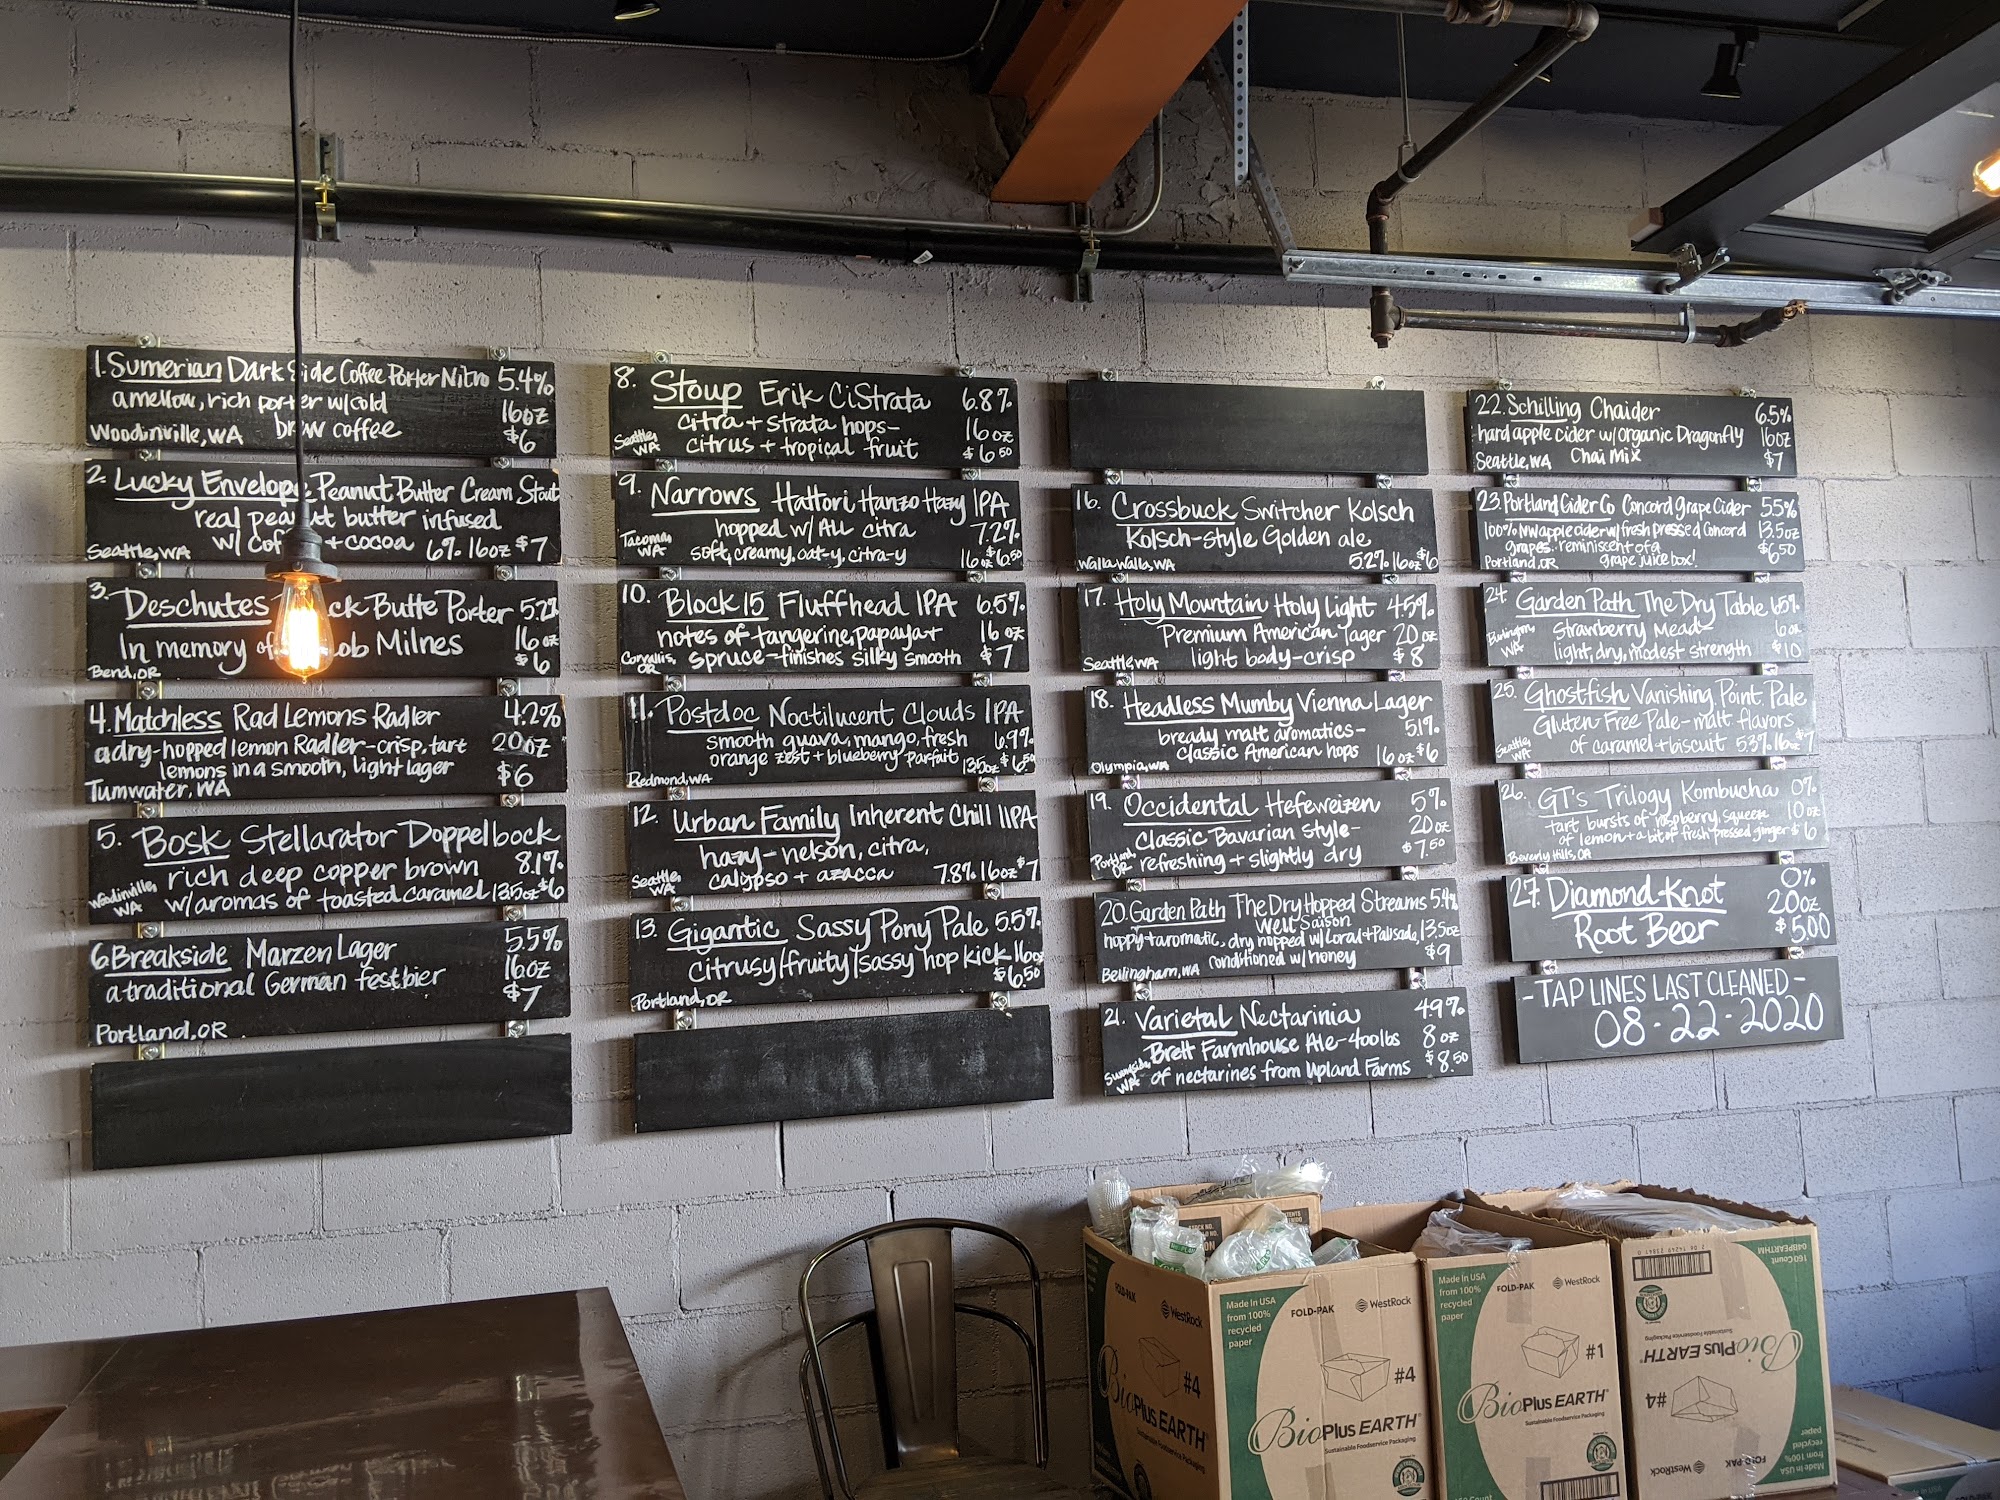 1. Sumerian Dark Side Coffee Porter Nitro 5.4%
a mellow, rich porter w/cold 16oz
brew coffee $6
Woodinville, WA
2. Lucky Envelope Peanut Butter Cream Stout
real peanut butter infused
w/ coffee + cocoa 6% 16oz $7
Seattle, WA
3. Deschutes Black Butte Porter 5.2%
In memory of Milnes 16oz
$6
Bend, OR
4. Matchless Rad Lemons Radler 4.2%
a dry-hopped lemon Radler-crisp, tart 20oz
lemons in a smooth, light lager $6
Tumwater, WA
5. Bosk Stellarator Doppelbock
rich deep copper brown 8.1%
w/aromas of toasted caramel 13.5oz $6
Woodinville, WA
6. Breakside Marzen Lager 5.5%
a traditional German festbier 16oz
$7
Portland, OR
8. Stoup Erik CiStrata 6.8%
citra + strata hops- 16oz
citrus + tropical fruit $6.50
Seattle, WA
9. Narrows Hattori Hanzo Hazy IPA
hopped w/ALL citra 7.2%
soft, creamy, oat-y, citra-y 16oz $6.50
Tacoma, WA
10. Block 15 Fluffhead IPA 6.5%
notes of tangerine, papaya + 16oz
spruce-finishes silky smooth $7
Corvallis, OR
11. Postdoc Noctilucent Clouds IPA
smooth guava, mango, fresh 6.9%
orange zest + blueberry parfait 13.5oz $6.50
Redmond, WA
12. Urban Family Inherent Chill IIPA
hazy-nelson, citra,
calypso + azacca 7.8% 16oz $7
Seattle, WA
13. Gigantic Sassy Pony Pale 5.5%
citrusy/fruity/sassy hop kick 16oz
$6.50
Portland, OR
16. Crossbuck Switcher Kolsch
Kolsch-style Golden ale
5.2% 16oz $6
Walla Walla, WA
17. Holy Mountain Holy Light 4.5%
Premium American lager 20oz
light body-crisp $8
Seattle, WA
18. Headless Mumby Vienna Lager
bready malt aromatics- 5.1%
classic American hops 16oz $6
Olympia, WA
19. Occidental Hefeweizen 5%
Classic Bavarian style- 20oz
refreshing + slightly dry $7.50
Portland, OR
20. Garden Path The Dry Hopped Streams 5.4%
Well Saison
hoppy + aromatic, dry hopped w/Loral + Palisade, 13.5oz
conditioned w/honey $9
Bellingham, WA
21. Varietal Nectarinia 4.9%
Brett Farmhouse Ale-400lbs 8oz
of nectarines from Upland Farms $8.50
Sunnyside, WA
22. Schilling Chaider 6.5%
hard apple cider w/organic Dragonfly 16oz
Chai Mix $7
Seattle, WA
23. Portland Cider Co Concord Grape Cider 5.5%
100% NW apple cider w/fresh pressed Concord 13.5oz
grapes. reminiscent of a $6.50
grape juice box!
Portland, OR
24. Garden Path The Dry Table 6.5%
Strawberry Mead- 6oz
light, dry, modest strength $10
Burlington, WA
25. Ghostfish Vanishing Point Pale
Gluten Free Pale-malt flavors
of caramel + biscuit 5.3% 16oz $7
Seattle, WA
26. GT's Trilogy Kombucha 0%
tart bursts of raspberry, squeeze 10oz
of lemon + a bit of fresh pressed ginger $6
Beverly Hills, CA
27. Diamond Knot 0%
Root Beer 20oz
$5.00
-TAP LINES LAST CLEANED-
08-22-2020
FOLD-PAK WestRock
#4
BioPlus EARTH
Made in USA
from 100%
recycled
paper
FOLD-PAK WestRock
#4
BioPlus EARTH
Sustainable Foodservice Packaging
Made in USA
from 100%
recycled
paper
FOLD-PAK WestRock
#1
BioPlus EARTH
Sustainable Foodservice Packaging
160 Count
04BPEARTHM
BioPlus EARTH
Sustainable Foodservice Packaging
#4
FOLD-PAK WestRock
Made in USA
from 100%
recycled
paper